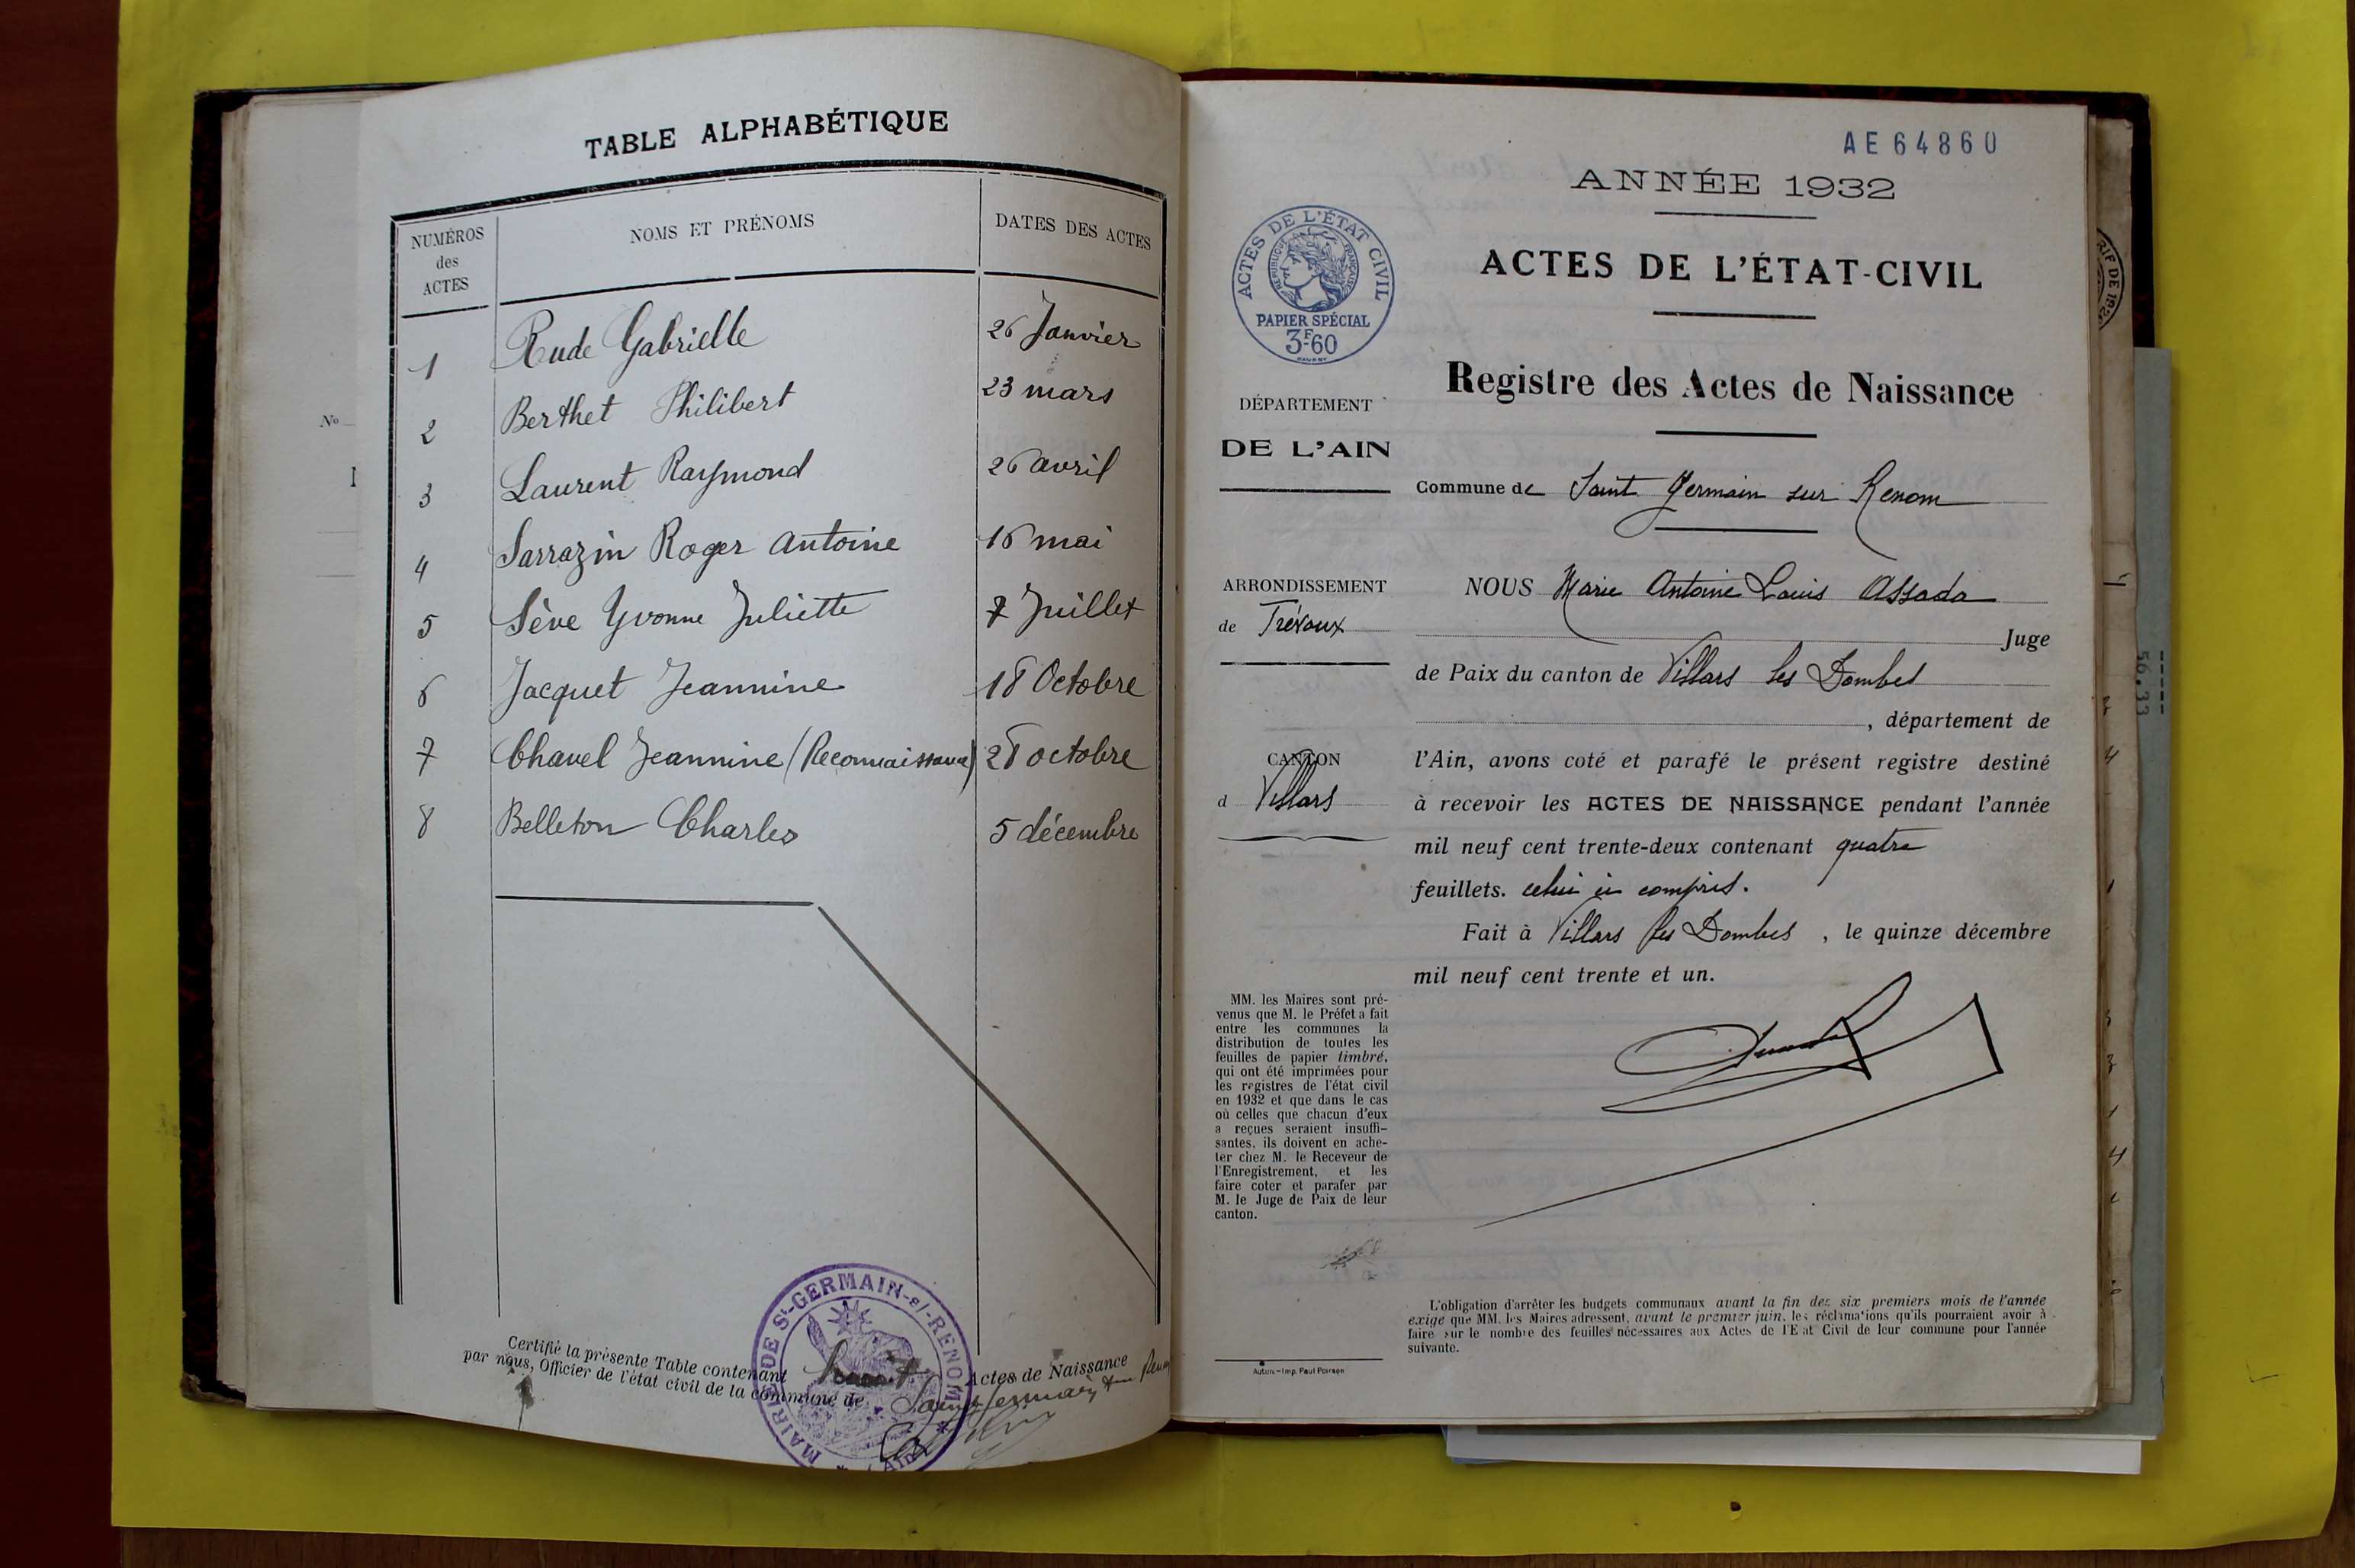 TABLE ALPHABÉTIQUE
NUMÉROS
des
ACTES
NOMS ET PRÉNOMS
DATES DES ACTES
1 Rude Gabrielle 26 Janvier
2 Berthet Philibert 23 mars
3 Laurent Raymond 26 avril
4 Sarrazin Roger Antoine 16 mai
5 Sève Yvonne Juliette 7 Juillet
6 Jacquet Jeannine 18 Octobre
7 Chavel Jeannine (Reconnaissance) 28 octobre
8 Belleton Charles 5 décembre
Certifié la présente Table contenant Actes de Naissance
par nous, Officier de l'état civil de la commune de Saint Germain sur
MAIRIE DE St-GERMAIN-s/-RENOM
(Ain)
No
I
AE 64860
ANNÉE 1932
ACTES DE L'ÉTAT-CIVIL
Registre des Actes de Naissance
ACTES DE L'ÉTAT CIVIL
RÉPUBLIQUE FRANÇAISE
PAPIER SPÉCIAL
3F60
DÉPARTEMENT
DE L'AIN
Commune de Saint Germain sur Renom
ARRONDISSEMENT
de Trévoux
CANTON
d Villars
NOUS Marie Antoine Louis Assada
Juge
de Paix du canton de Villars les Dombes
, département de
l'Ain, avons coté et parafé le présent registre destiné
à recevoir les ACTES DE NAISSANCE pendant l'année
mil neuf cent trente-deux contenant quatre
feuillets. celui ci compris.
Fait à Villars les Dombes , le quinze décembre
mil neuf cent trente et un.
MM. les Maires sont pré-
venus que M. le Préfet a fait
entre les communes la
distribution de toutes les
feuilles de papier timbré,
qui ont été imprimées pour
les registres de l'état civil
en 1932 et que dans le cas
où celles que chacun d'eux
a reçues seraient insuffi-
santes, ils doivent en ache-
ter chez M. le Receveur de
l'Enregistrement, et les
faire coter et parafer par
M. le Juge de Paix de leur
canton.
L'obligation d'arrêter les budgets communaux avant la fin des six premiers mois de l'année
exige que MM. les Maires adressent, avant le premier juin, les réclamations qu'ils pourraient avoir à
faire sur le nombre des feuilles nécessaires aux Actes de l'Etat Civil de leur commune pour l'année
suivante.
Autun.—Imp. Paul Poirson